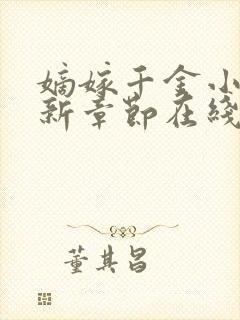 嫡嫁千金小
新章节在线
董其昌